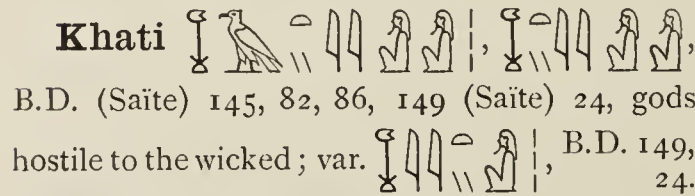 Khati , ,
B.D. (Saïte) 145, 82, 86, 149 (Saïte) 24, gods
hostile to the wicked; var. , B.D. 149,
24.